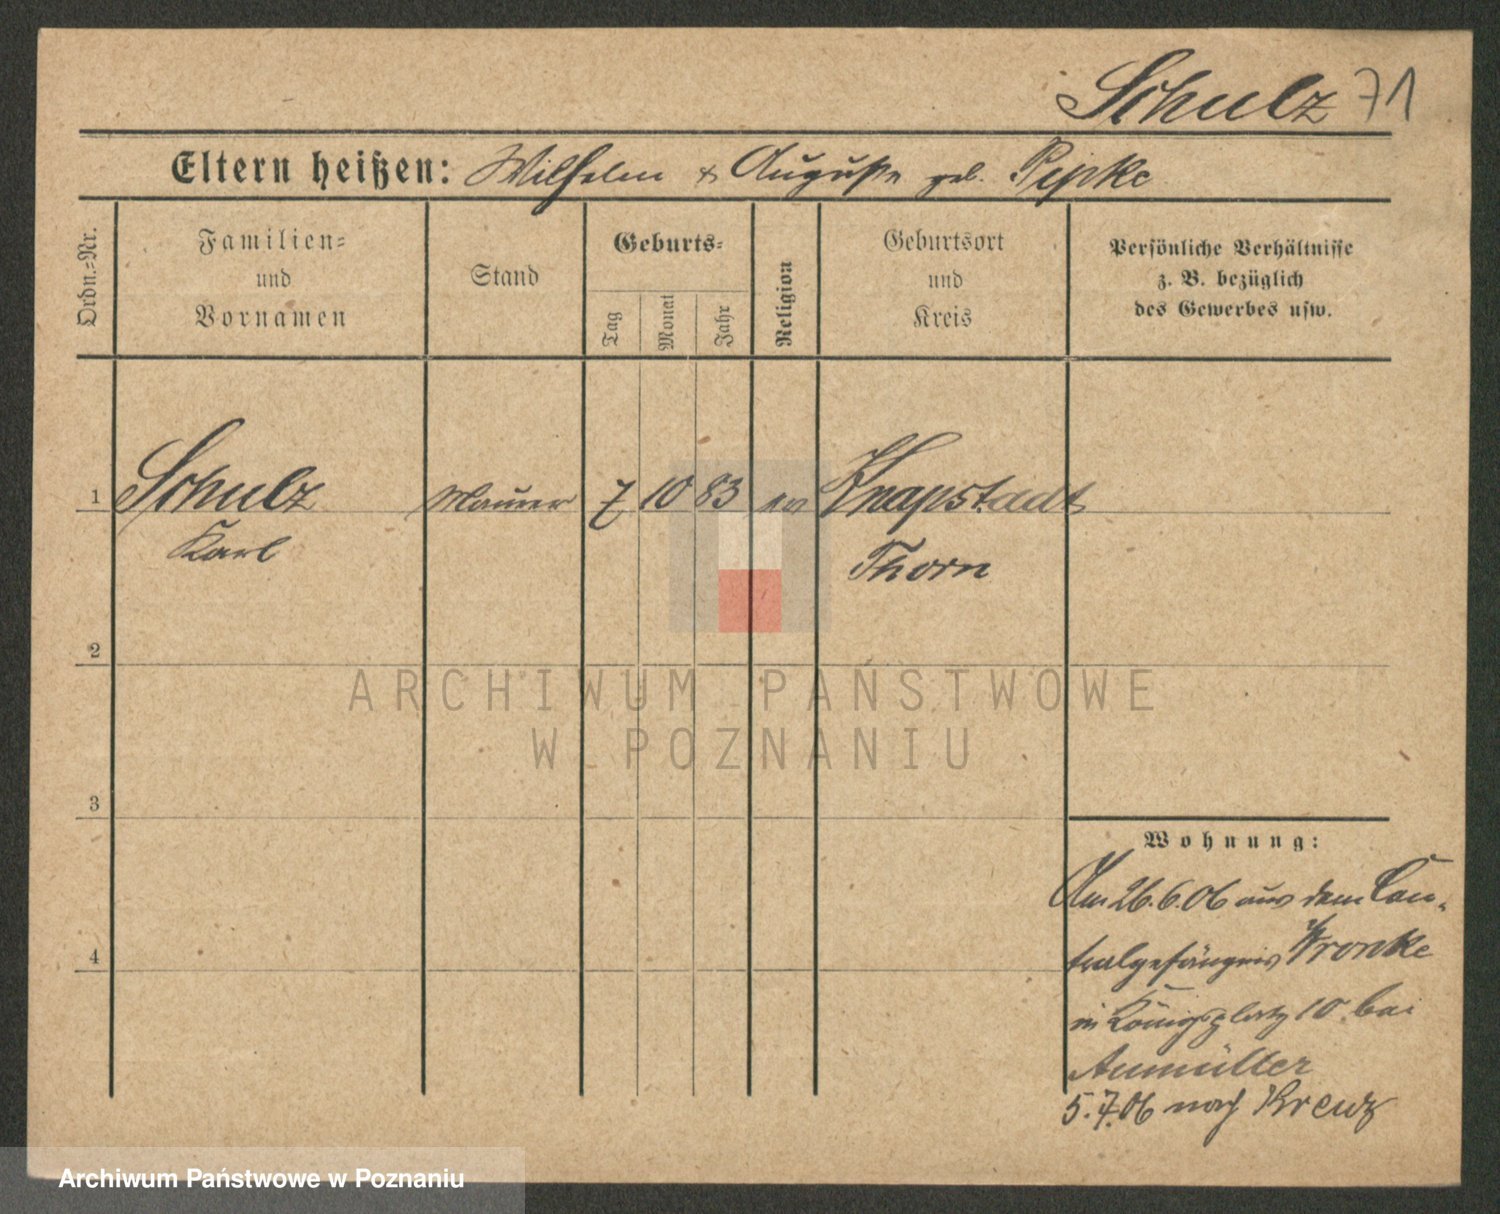 Schulz 71
Eltern heißen: Wilhelm & Auguste geb. Pepke
Ordn.-Nr.
Familien-
und
Vornamen
Stand
Geburts-
Tag
Monat
Jahr
Religion
Geburtsort
und
Kreis
Persönliche Verhältnisse
z. B. bezüglich
des Gewerbes usw.
1 Schulz Maurer 7 10 83 ev Knapstadt
Karl Thorn
2
3
4
Wohnung:
Am 26.6.06 aus dem Cen-
tralgefängnis Wronke
in Königsplatz 10 bei
Aumüller
5.7.06 nach Kreuz
ARCHIWUM PAŃSTWOWE
W POZNANIU
Archiwum Państwowe w Poznaniu